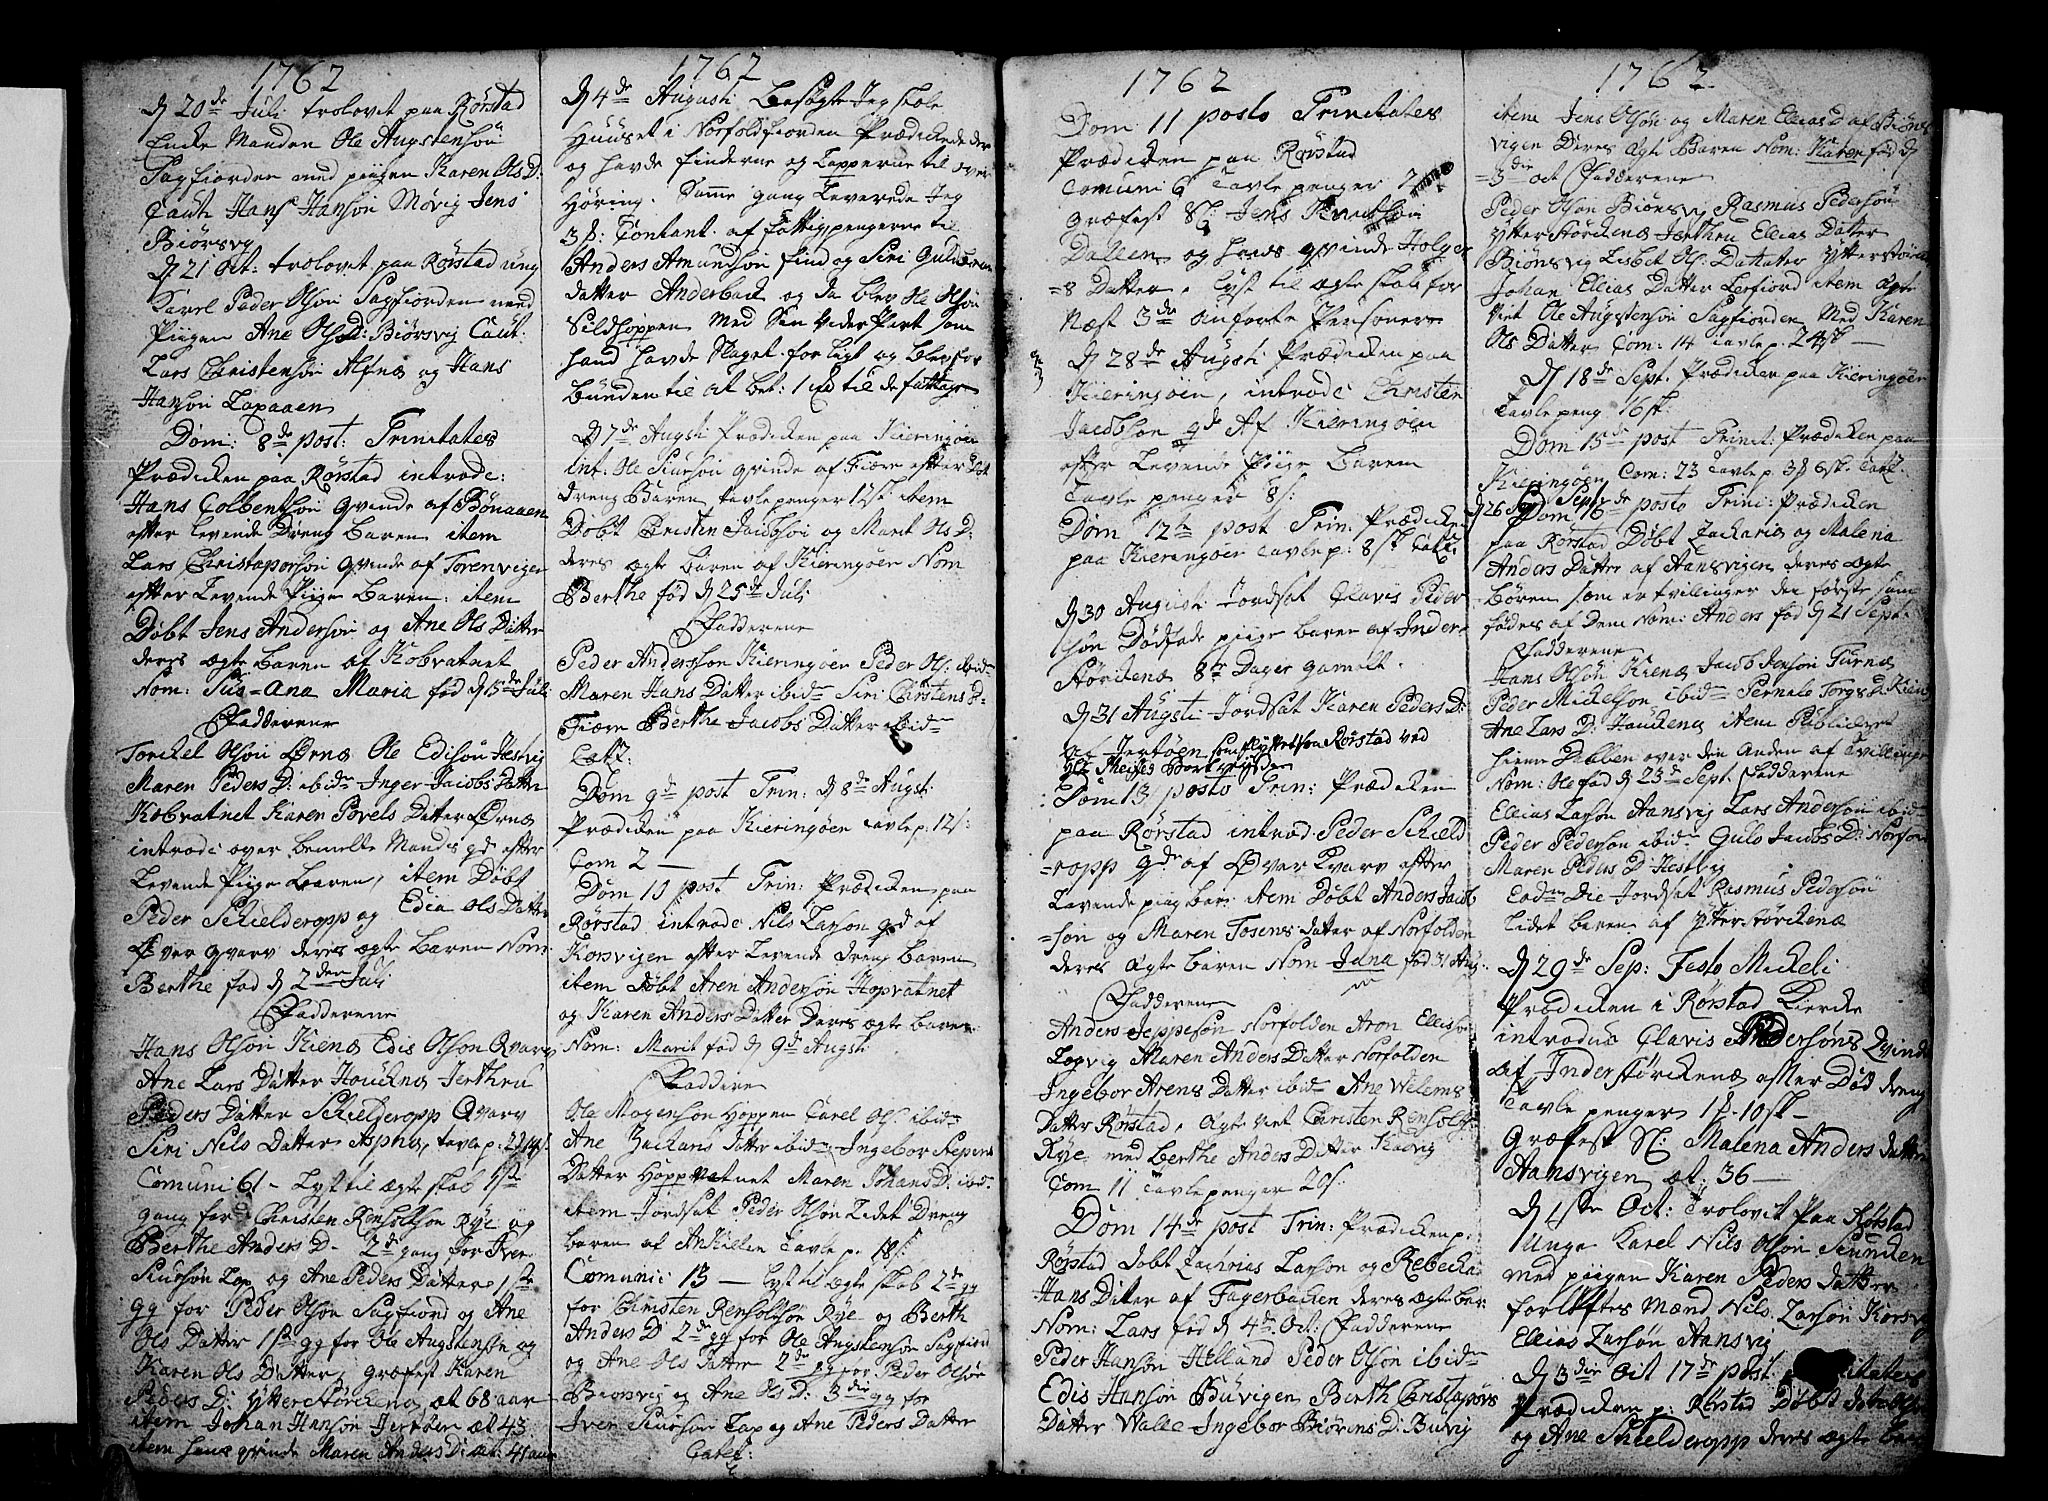 1762
D 20de Juli trolovet paa Rørstad
Encke Manden Ole Augstensøn
Sagfiorden med piigen Karen Ols D:
Caut: Hans Hansøn Møvig Jens
Biørsvig
D 21 Oct: trolovet paa Rørstad ung
Karel Peder Olsøn Sagfiorden med
Piigen Ane Ols D: Biørsvig Caut:
Lars Christensøn Alfnæs og Hans
Hansøn Lapaaen
Dom: 8de post: Trinitates
Prædicken paa Rørstad introde:
Hans Colbentsøn qvinde af Bønaaen
efter levende Dreng Baren item
Lars Christophersøn qvinde af Torenvigen
efter Levende Piige Baren: item
Døbt Jens Andersøn og Ane Ols Datter
deres ægte Baren af Kobvatnet
Nom: Sus-Ana Maria fød D 15de Juli
Fadderene
Torckel Olsøn Ørnæs Ole Edisøn Hestvig
Maren Peders D: ibidm Inger Jacobs Datter
Kobvatnet Karen Povels Datter Ørnæs
introde over bemelte Mands qde efter
Levende Piige Baren, item Døbt
Peder Schielderopp og Edia Ols Datter
Øver qvarv deres ægte Baren Nom:
Berthe fød D 2den Juli
Fadderene
Hans Olsøn Kienæs Edis Olsøn Qvarv
Ane Lars Datter Houcknæs Jerthru
Peders Datter Schielderopp Qvarv
Siri Nils Datter Aspnæs, tavle p:
Comuni 61 - Lyst til ægte skab 1ste
gang for Christen Rønholtsøn Rye og
Berthe Anders D - 2de gang for Iver
Siursøn Lap og Ane Peders Datter 1ste
gg for Peder Olsøn Sagfiord og Ane
Ols Datter 1ste gg for Ole Augstensøn og
Karen Ols Datter, græfest Karen
Peders D: Ytter Størcknæs, æt 68 aar
item Johan Hansøn Jertøen æt 43
item hans qvinde Maren Anders D: æt: 41 aar
1762
D 4de Augusti Besøgte Jeg skole
Huuset i Norfoldfiorden Prædickede der
og havde finderne og Lapperne til over
Høring. Samme gang Leverede Jeg
3 ß: Contant. af fattigpengerne til
Anders Amundsøn find og Siri Guldbrans
datter Anderback og da blev Ole Olsøn
Sildhoppen Med Sin Veder Part som
hand havde Slaget forligt og blev for
bunden til at bet: 1 til de fattige
D 7de Augsti Prædicken paa Kieringøen
int: Ole Siursøn qvinde af Fiære efter
dreng Baren tavle penger 12 sk item
Døbt Christen Jacobsøn og Marit Ols D:
deres ægte baren af Kieringøen Nom
Berthe fød D 25de Juli
Fadderene
Peder Anderssøn Kieringøen Peder Ols: ibidm
Maren Hans Datter ibidm Siri Christens D:
Fiære Berthe Jacobs Datter ibidm
Catt:
Dom 9de post Trin: D 8de Augst:
Prædicken paa Kieringøen Tavle p: 12 s:
Com 2 —
Dom 10 post Trin: Prædicken paa
Rørstad introde Nils Larsøn qde af
Korsvigen efter Levende dreng baren
item Døbt Aren Andersøn Hopvatnet
og Karen Anders Datter Deres ægte baren
Nom: Marit fød D 9de Augsti
Faddere
Ole Mogensøn Hoppen Carel Ols. ibidm
Ane Zacharis Datter ibidm Ingebor Jepens
Datter Hoppvatnet Maren Johans D: ibid.
item Jordsat Peder Olsøn Lidet Dreng
baren af Ankillen Tavle p. 18 s:
Comunic 13 — Lyst til ægte skab 2de gg
for Christen Renholtsøn Rye og Berth
Anders D 2de gg for Ole Augstensøn Sagfiord
og Ane Ols Datter 2de gg for Peder Olsøn
Biørsvig og Ane Ols D: 3die gg for
Iver Siursøn Lap og Ane Peders Datter
Catet:
1762
Dom 11 posto Trinitates
Prædicken paa Rørstad
Comuni 6 Tavle penger
Græfest Sl: Jens Knutsøn
Dallen og hans qvinde Holger
=s Datter. Lyst til ægte skab for
Næst 3de anførte Personer
D 28de Augsti Prædicken paa
Kieringøen, introde Christen
Jacobsøn qde Af Kieringøen
efter Levende Piige Baren
Tavle penger 8 s:
Dom 12te post Trin: Prædicken
paa Kieringøen tavle p: 8 sk Catt:
D 30 Augusti Jordsat Clavis Peder
søn Dødføde piige baren af Inder=
Størcknæs 8te Dager gamelt.
D 31 Augsti Jordsat Karen Peders D:
af Jertøen som flyttet fra Rørstad ved
Dom 13 posto Trin: Prædicken
paa Rørstad introd: Peder Schield
=ropp qde af Øver Kvarv efter
Levende piig bar: item Døbt Anders Jacob
=søn og Maren Tosens datter af Norfolden
deres Ægte baren Nom Jana fød 31 Aug:
Fadderene
Anders Jeppesøn Norfolden Aron Ellisøn
Løgvig Maren Anders Datter Norfolden
Ingebor Arens Datter ibidm Ane Welems
Datter Rørstad. Ægte Viet Christen Renholtsøn
Rye med Berthe Anders Datter Hasvig
Com 11 Tavle penger 20 s:
Dom 14de post Trin: Prædicken p:
Rørstad Døbt Zachrias Larsøn og Rebecka
Hans Datter af Fagerbacken deres ægte bar:
Nom: Lars fød D 4de Oct: Fadderene
Peder Hansøn Helland Peder Olsøn ibidm
Edis Hansøn Buvigen Berth Christophers
Datter Walle Ingebor Biørens D: Buvig
1762.
item Jens Olsøn og Maren Ellias D af Biørs
vigen Deres Ægte Baren Nom: Karen fød D
=3die Oct Fadderene
Peder Olsøn Biørsvig Rasmus Pedersøn
Ytter Størcknæs Jerthru Ellias Datter
Biørsvig Lisbet Ols: Dattater Ytterstørck
Johan Ellias Datter Leefiord item Ægte
Viet Ole Augstensøn Sagfiorden Med Karen
Ols Datter Com: 14 Tavle p: 24 sk —
D 18de Sept. Prædicken paa Kieringøen
Tavle peng 16 sk:
Dom 15de post Trinit: Prædicken paa
Kieringøen Com: 23 Tavle p: 3 ß 6 sk: Catt.
D 26 Sept Dom 16de posto Trini: Prædicken
paa Rørstad Døbt Zacharias og Malena
Anders Datter af Hansvigen deres ægte
Børen som er tvillinger den første som
fødes af Dem Nom: Anders fød D 21 Sept.
Fadderene
Hans Olsøn Kienæs Jacob Jensøn Furnæs
Peder Mickelsøn ibidm Pernele Torgs D: Kien
Ane Lars D: Houcknæs item Publiceret
hieme Dobben over den Anden af Tvillinge
Nom: Ole fød D 23de Sept. Fadderene
Ellias Larsøn Hansvig Lars Andersøn ibidm
Peder Pedersøn ibidm Gulo Jacobs D: Norfon
Maren Peders D: Hestvig
Eadm Die Jordsat Rasmus Pedersøn
Lidet baren af Ytterstørckenæs
D 29de Sep: Festo Mickeli
Prædicken i Rørstad Kiercke
introdus Clavis Pedersøns Qvinde
af Inderstørckenæs efter Død dreng
Tavle penger 1 ß - 10 sk —
Græfest Sl: Malena Anders datter
Hansvigen æt: 36 —
D 1ste Oct: Trolovet Paa Rørstad
Unge Karel Nils Olsøn
med piigen Karen Peders datter
forløftes Mænd Nils Larsøn Korsvig
Ellias Larsøn Hansvig
D 3die Oct 17de post
Prædicken p: Rørstad Døbt
og Ane Schielderopp deres ægte bar